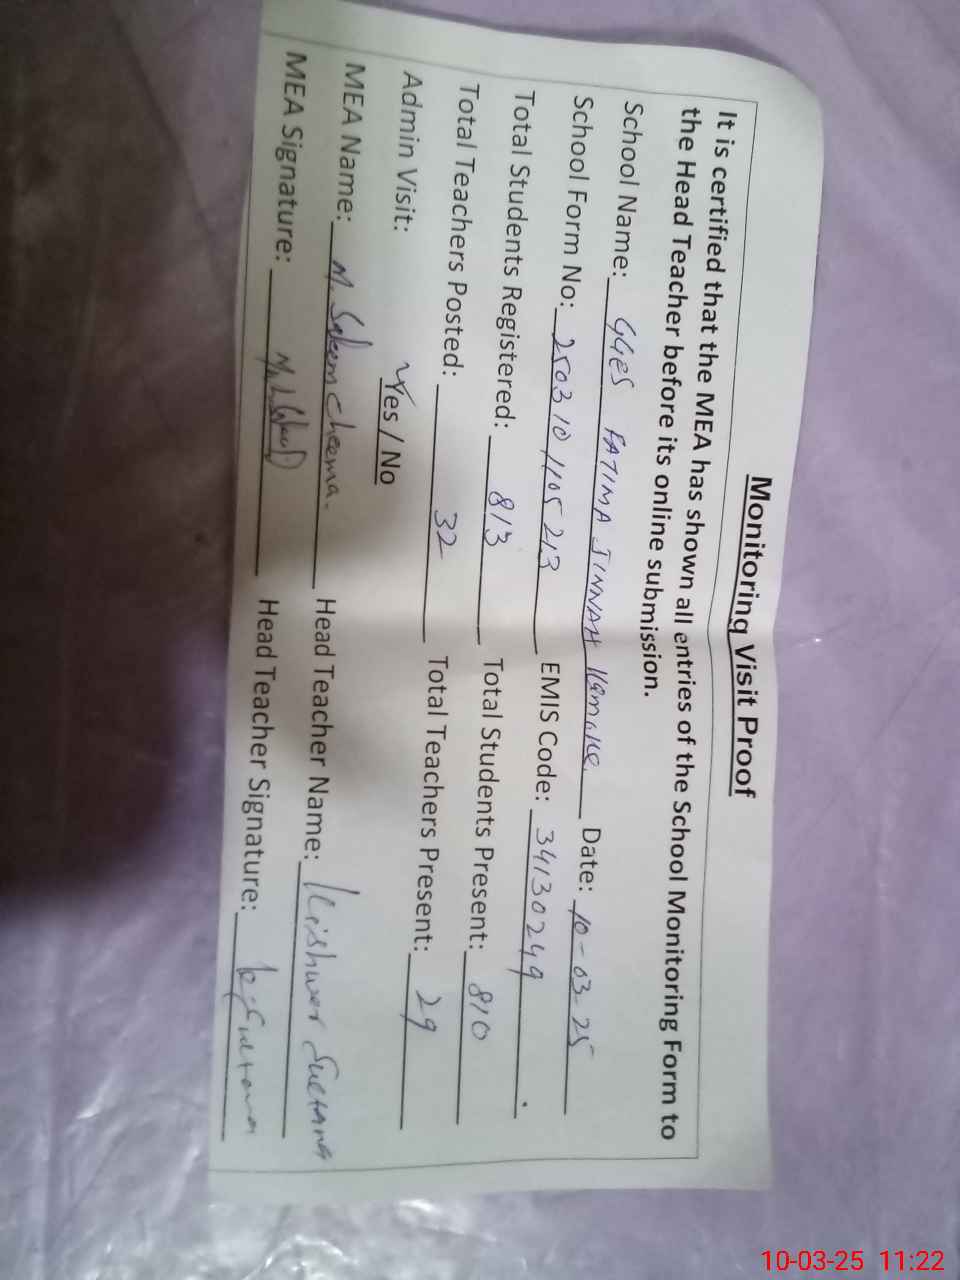 Monitoring Visit Proof
It is certified that the MEA has shown all entries of the School Monitoring Form to
the Head Teacher before its online submission.
School Name: GGES FATIMA JINNAH Kamoke. Date: 10-03-25
School Form No: 2503101105213 EMIS Code: 34130249
Total Students Registered: 813 Total Students Present: 810
Total Teachers Posted: 32 Total Teachers Present: 29
Admin Visit: Yes / No
MEA Name: M. Saleem Cheema. Head Teacher Name: Kishwer Sultana
MEA Signature: Head Teacher Signature:
10-03-25 11:22